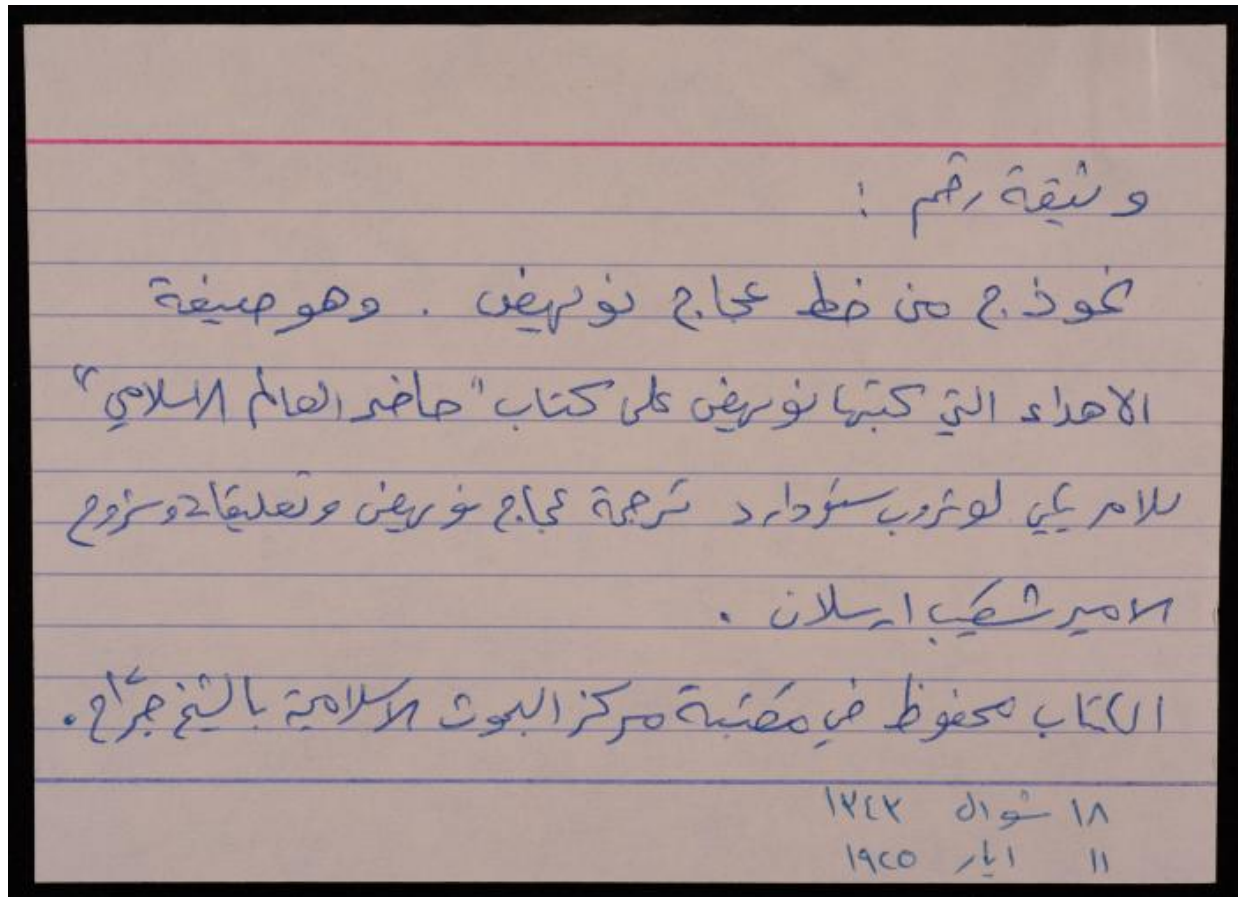 وثيقة رقم :
نموذج من خط عجاج نويهض . وهو صيغة
الاهداء التي كتبها نويهض على كتاب "حاضر العالم الاسلامي"
للامريكي لوثروب ستودارد ترجمة عجاج نويهض وتعليقات وشروح
الامير شكيب ارسلان .
الكتاب محفوظ في مكتبة مركز البحوث الاسلامية بالشيخ جرّاح .
١٨ شوال ١٣٤٣
١١ ايار ١٩٢٥